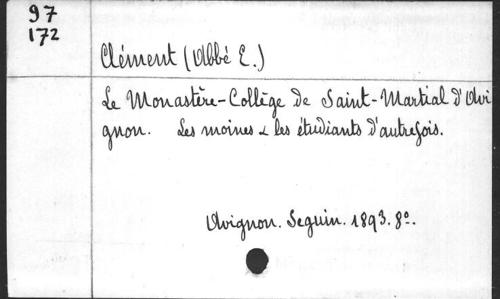 97
172
Clément (Abbé E.)
Le Monastère-Collège de Saint-Martial d'Avi
gnon. Les moines & les étudiants d'autrefois.
Avignon. Seguin. 1893. 8º.